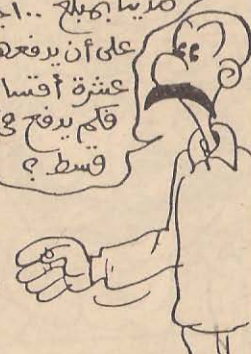 مدينا بمبلغ ..١
على أن يدفعه
عشرة أقسا
فكم يدفع في
قسط ؟